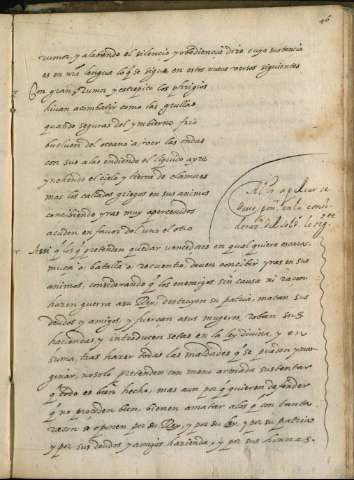 46
rumor, y alabando el silencio y obediencia dize cuya sustancia
es en nra lengua lo q̃ se sigue en estos nueve versos siguientes
Con gran rumor y estrepito los phrigios
hivan acombatir como las grullas
quando seguras del ymbierno frio
buelven del oceano a las ondas
con sus alas endiendo el liquido ayre
y el cielo y tierra de clamores
mas los callados griegos en sus animos
concibiendo yras muy apercevidos
acuden en favor del uno el otro
Assi q̃ los q̃ pretenden quedar vencedores en qual quiera
o batalla o recuentro, deven concebir yras en sus
animos, considerando q̃ los enemigos sin causa ni razon
hazen guerra a su Rey, destruyen su patria, matan sus
deudos y amigos, y fuerçan a sus mugeres, roban sus
haciendas y introducen setas en la ley divina, y en
suma, tras hazer todas las maldades q̃ se pueden
ginar, no solo pretenden con mano armada sustentar
q̃ todo es bien hecho, mas aun por q̃ quieren defender
q̃ no proceden bien, vienen a matar a los q̃ con tanta
razon se oponen por su Rey, y por su ley, y por su patria
y por sus deudos y amigos hazienda, y por sus honras.